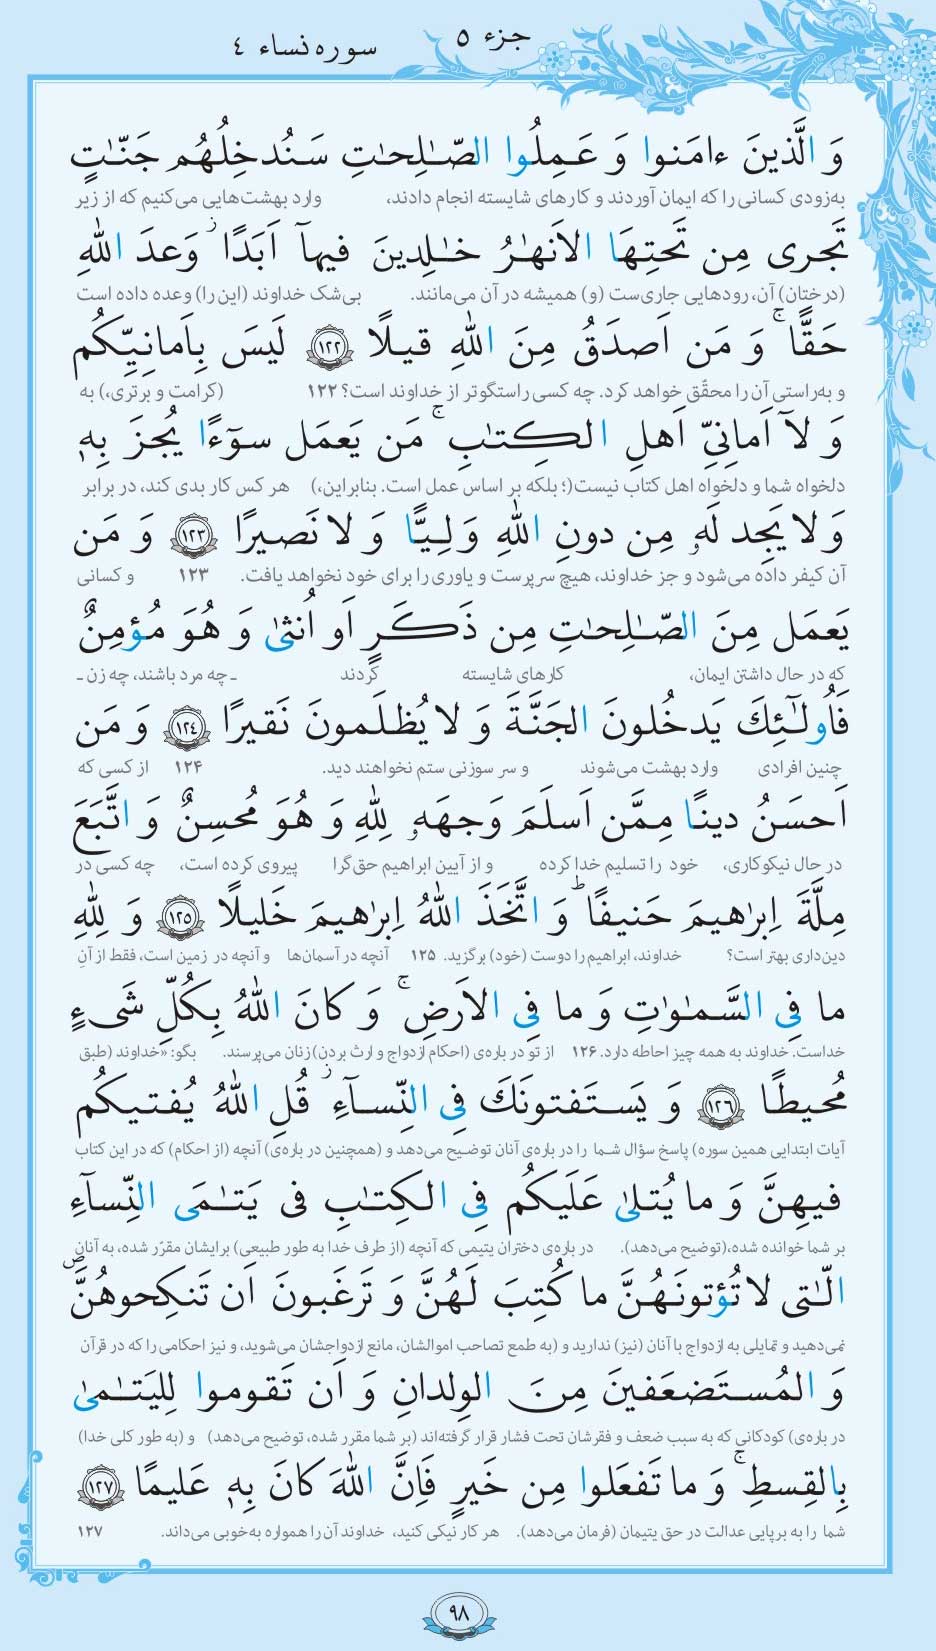 جزء ۵
سوره نساء ۴
وَ الَّذینَ ءامَنوا وَ عَمِلُوا الصّـٰلِحـٰتِ سَنُدخِلُهُم جَنّـٰتٍ
به‌زودی کسانی را که ایمان آوردند و کارهای شایسته انجام دادند، وارد بهشت‌هایی می‌کنیم که از زیر
تَجری مِن تَحتِهَا الاَنهـٰرُ خـٰلِدینَ فیهآ اَبَدًا ز وَعدَ اللهِ
(درختان) آن، رودهایی جاری‌ست (و) همیشه در آن می‌مانند. بی‌شک خداوند (این را) وعده داده است
حَقًّا ج وَ مَن اَصدَقُ مِنَ اللهِ قیلًا ١٢٢ لَیسَ بِاَمانِیِّکُم
و به‌راستی آن را محقّق خواهد کرد. چه کسی راستگوتر از خداوند است؟ ۱۲۲ (کرامت و برتری،) به
وَ لآ اَمانِیِّ اَهلِ الکِتـٰبِ ج مَن یَعمَل سوٓءًا یُجزَ بِهٖ
دلخواه شما و دلخواه اهل کتاب نیست(؛ بلکه بر اساس عمل است. بنابراین،) هر کس کار بدی کند، در برابر
وَ لا یَجِد لَهٗ مِن دونِ اللهِ وَلِیًّا وَ لا نَصیرًا ١٢٣ وَ مَن
آن کیفر داده می‌شود و جز خداوند، هیچ سرپرست و یاوری را برای خود نخواهد یافت. ۱۲۳ و کسانی
یَعمَل مِنَ الصّـٰلِحـٰتِ مِن ذَکَرٍ اَو اُنثیٰ وَ هُوَ مُؤمِنٌ
که در حال داشتن ایمان، کارهای شایسته گردند ـ چه مرد باشند، چه زن ـ
فَاُولـٰٓئِکَ یَدخُلونَ الجَنَّةَ وَ لا یُظلَمونَ نَقیرًا ١٢٤ وَ مَن
چنین افرادی وارد بهشت می‌شوند و سر سوزنی ستم نخواهند دید. ۱۲۴ از کسی که
اَحسَنُ دینًا مِمَّن اَسلَمَ وَجهَهٗ لِلّٰهِ وَ هُوَ مُحسِنٌ وَ اتَّبَعَ
در حال نیکوکاری، خود را تسلیم خدا کرده و از آیین ابراهیم حق‌گرا پیروی کرده است، چه کسی در
مِلَّةَ اِبرٰهیمَ حَنیفًا ط وَ اتَّخَذَ اللهُ اِبرٰهیمَ خَلیلًا ١٢٥ وَ لِلّٰهِ
دین‌داری بهتر است؟ خداوند، ابراهیم را دوست (خود) برگزید. ۱۲۵ آنچه در آسمان‌ها و آنچه در زمین است، فقط از آنِ
ما فِی السَّمـٰوٰتِ وَ ما فِی الاَرضِ ج وَ کانَ اللهُ بِکُلِّ شَیءٍ
خداست. خداوند به همه چیز احاطه دارد. ۱۲۶ از تو درباره‌ی (احکام ازدواج و ارث بردن) زنان می‌پرسند. بگو: «خداوند (طبق
مُحیطًا ١٢٦ وَ یَستَفتونَکَ فِی النِّسآءِ ز قُلِ اللهُ یُفتیکُم
آیات ابتدایی همین سوره) پاسخ سؤال شما را درباره‌ی آنان توضیح می‌دهد و (همچنین درباره‌ی) آنچه (از احکام) که در این کتاب
فیهِنَّ وَ ما یُتلیٰ عَلَیکُم فِی الکِتـٰبِ فی یَتـٰمَی النِّسآءِ
بر شما خوانده شده،(توضیح می‌دهد). درباره‌ی دختران یتیمی که آنچه (از طرف خدا به طور طبیعی) برایشان مقرّر شده، به آنان
الّـٰتی لا تُؤتونَهُنَّ ما کُتِبَ لَهُنَّ وَ تَرغَبونَ اَن تَنکِحوهُنَّ ص
نمی‌دهید و تمایلی به ازدواج با آنان (نیز) ندارید و (به طمع تصاحب اموالشان، مانع ازدواجشان می‌شوید، و نیز احکامی را که در قرآن
وَ المُستَضعَفینَ مِنَ الوِلدانِ وَ اَن تَقوموا لِلیَتـٰمیٰ
درباره‌ی) کودکانی که به سبب ضعف و فقرشان تحت فشار قرار گرفته‌اند (بر شما مقرر شده، توضیح می‌دهد) و (به طور کلی خدا)
بِالقِسطِ ج وَ ما تَفعَلوا مِن خَیرٍ فَاِنَّ اللهَ کانَ بِهٖ عَلیمًا ١٢٧
شما را به برپایی عدالت در حق یتیمان (فرمان می‌دهد). هر کار نیکی کنید، خداوند آن را همواره به‌خوبی می‌داند. ۱۲۷
۹۸